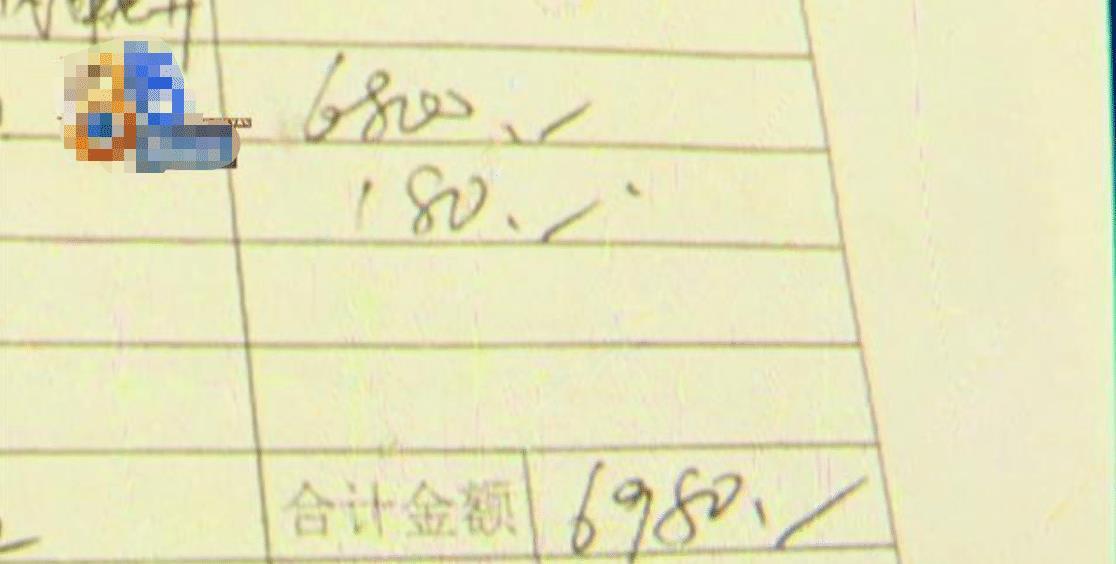 6800.-
180.-
合计金额 6980.-